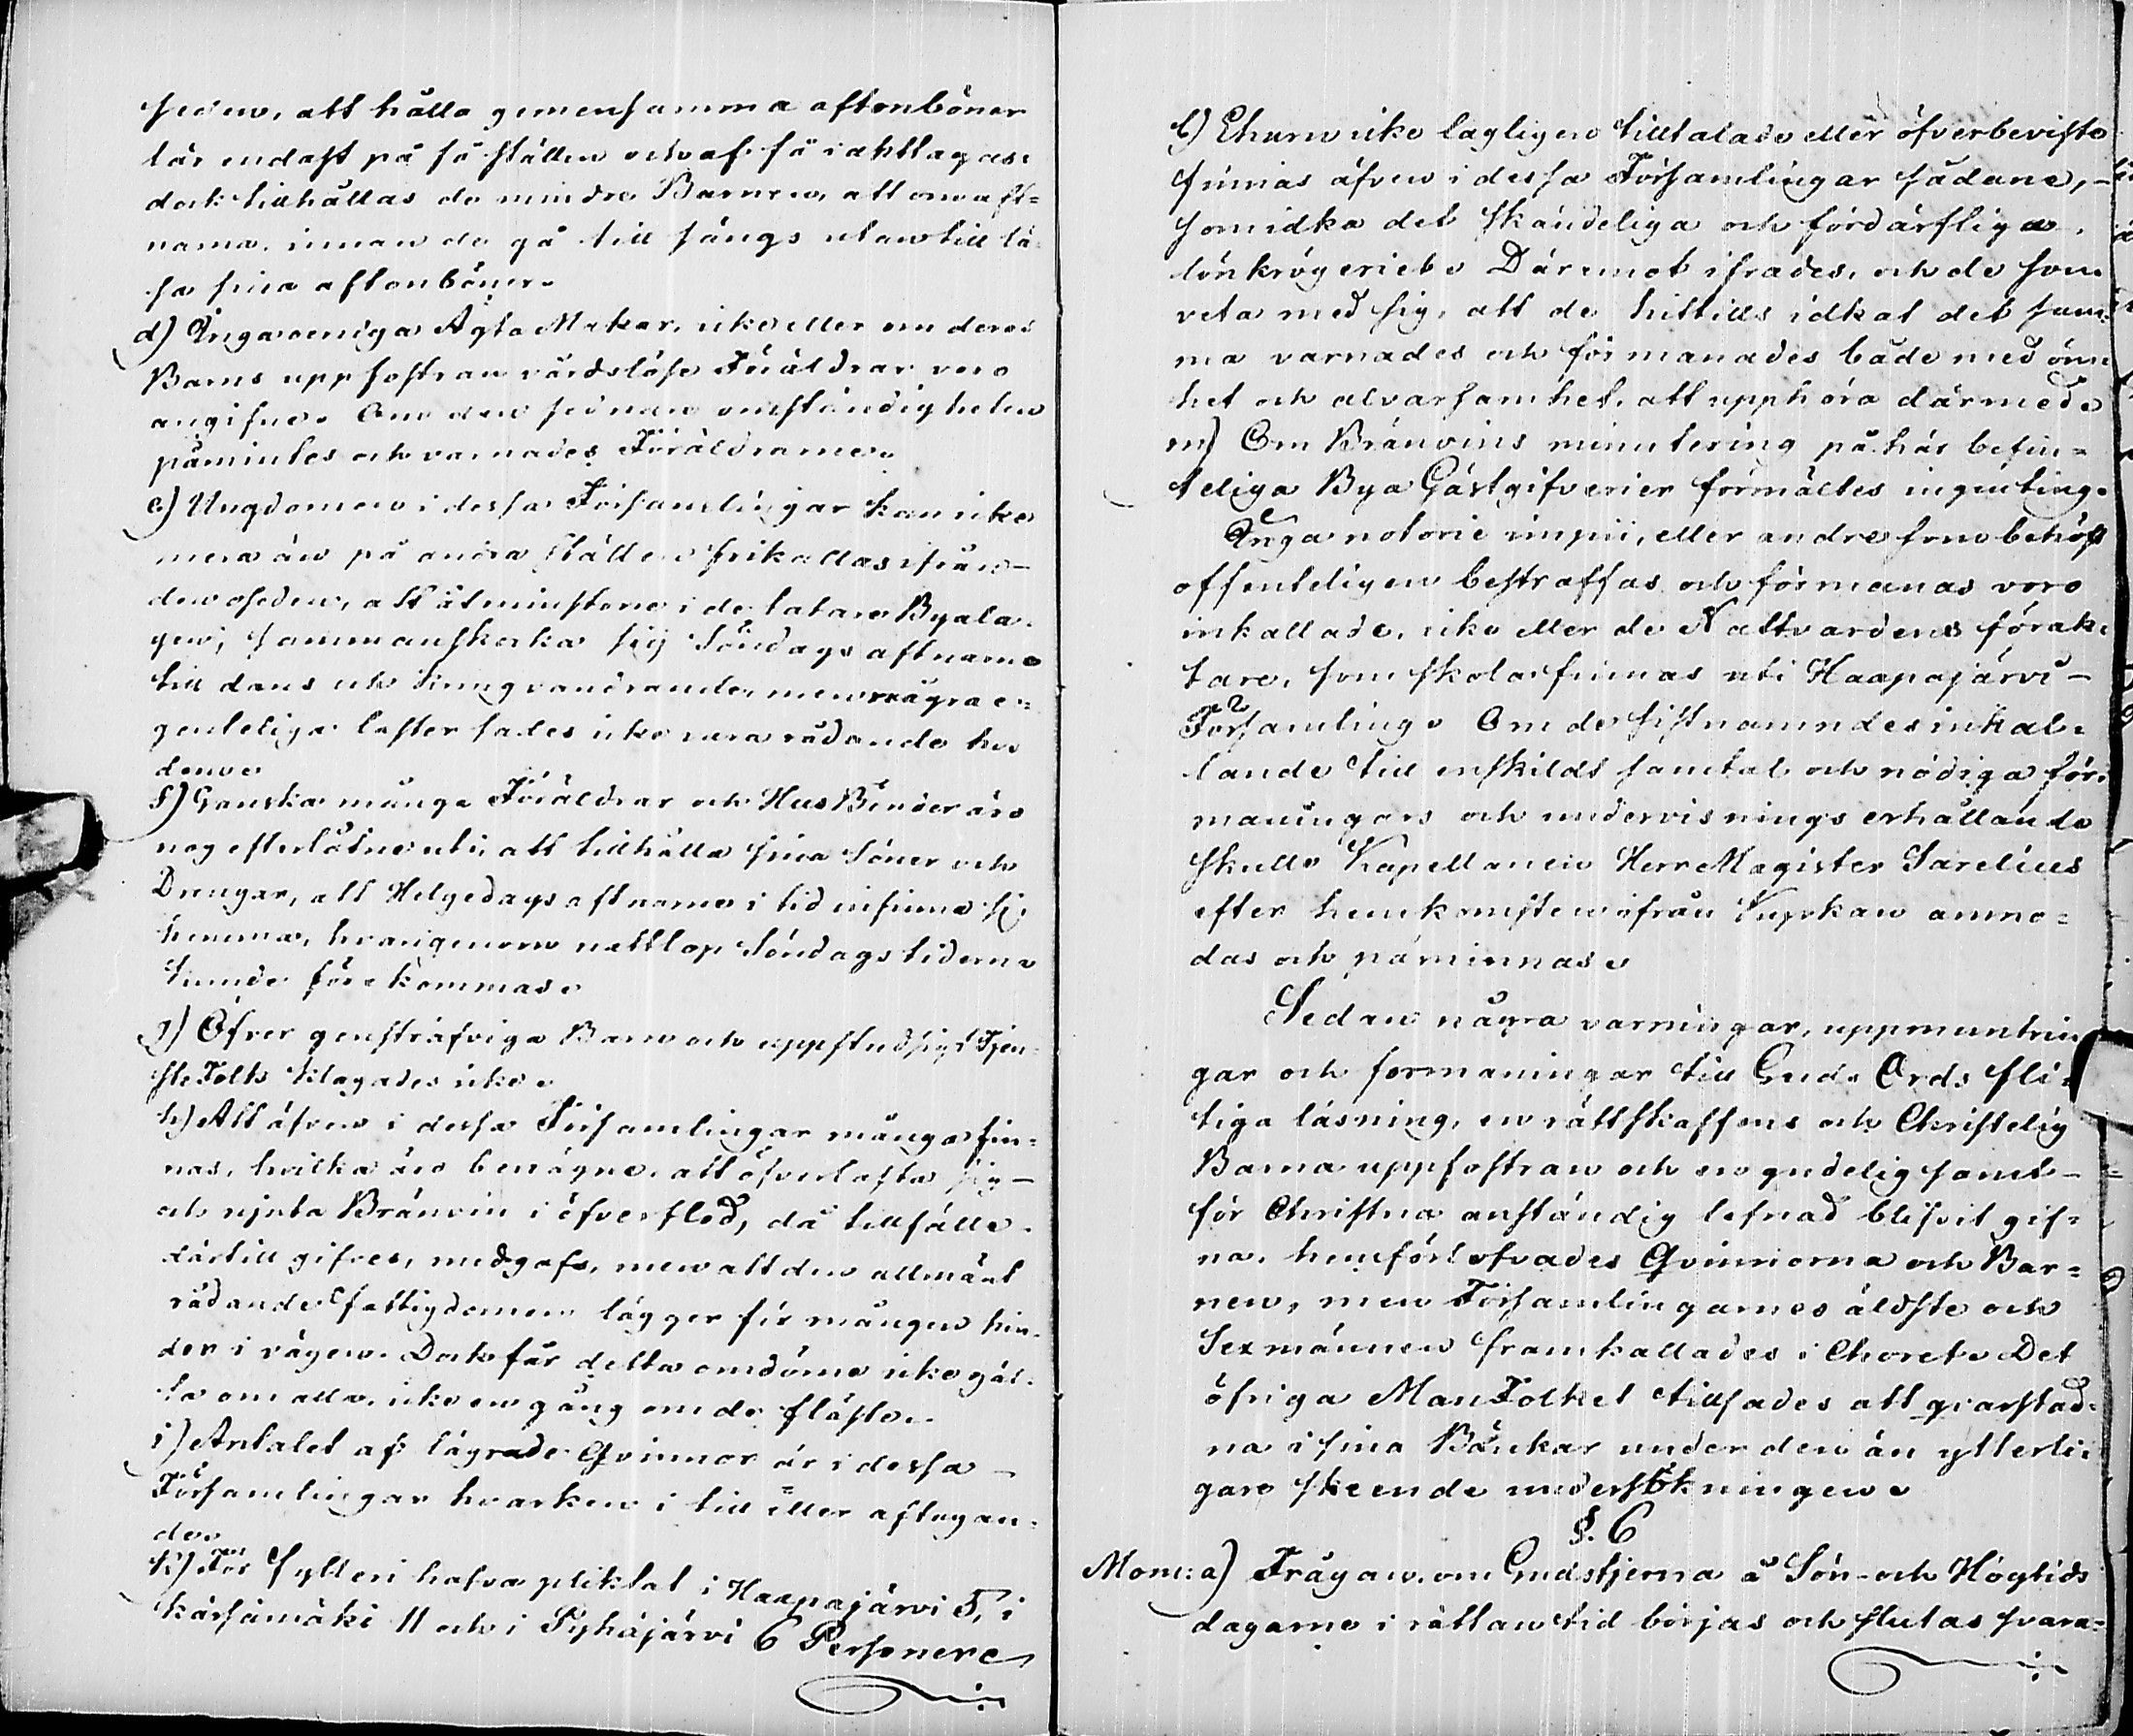 seden, att hålla gemensamma aftonböner
lär endast på få ställen och af få iakttagas:
dock tillhållas de mindre Barnen, att om aft=
narna, innan de gå till sängs utantill lä-
sa sina aftonböner.
d) Inga oeniga Ägta Makar, icke eller om deras
Barns uppfostran vårdslöse Föräldrar voro
angifne. Om den sednare omständigheten
påmintes och varnades Föräldrarne.
e) Ungdomen i dessa Församlingar kan icke
mera än på andra ställen frikallas ifrån –
den oseden, att åtminstone i de tätare Byala-
gen, sammanskocka sig Söndags aftnarne
till dans och kringvandrande, men några e=
genteliga laster sades icke vara rådande hos
denne.
f) Ganska många Föräldrar och HusBönder äro
nog efterlåtne uti, att tillhålla sina Söner och
Drengar, att Helgedags aftnarne i tid infinna sig
hemma, hvarigenom nattlop Söndagstiderna
kunde förekommas.
g) Öfver gensträfviga Barn och uppstudsigt Tjen-
steFolk klagades icke.
h) Att äfven i dessa Församlingar många fin=
nas, hvilka äro benägne, att öfverlasta sig –
och njuta Bränvin i öfverflöd, då tillfälle
därtill gifves, medgafs, men att den allmänt
rådande fattigdomen lägger för mången hin-
der i vägen. Dock får detta omdöme icke gäl-
la om alla, icke en gång om de fläste.
i) Antalet af lägrade Qvinnor är i dessa –
Församlingar hvarken i till= eller aftagan=
de.
k) För fylleri hafva pliktat i Haapajärvi 5, i
Kärsämäki 11 och i Pyhäjärvi 6 Personer
l) Ehuru icke lagligen tilltalade eller öfverbeviste
finnas äfven i dessa Församlingar sådane, –
som idka det skändeliga och fördärfliga
lönkrögeriet. Däremot ifrades, och de som
veta med sig, att de hittills idkat det sam-
ma varnades och förmanades både med öm-
het och alvarsamhet, att upphöra därmed.
m) Om Bränvins minutering på här befin=
teliga Bya Gästgifverier förmältes ingenting.
Inga notorie impii, eller andre som behöft
offenteligen bestraffas och förmanas voro
inkallade, icke eller de Nattvardens förak-
tare, som skola finnas uti Haapajärvi –
Församling. Om de sistnämndes inkal-
lande till enskildt samtal och nödiga för-
maningars och undervisnings erhållande
skulle Kapellanen Herr Magister Sarelius
efter hemkomsten ifrån Kyrkan anmo=
das och påminnas.
Sedan några varningar, uppmuntrin
gar och formaningar till Guds Ords fli-
tiga läsning, en rättskaffens och Christelig
Barna uppfostran och en gudelig samt –
för Christna anständig lefnad blifvit gif=
na, hemförlofvades Qvinnorna och Bar=
nen, men Församlingarnes äldste och
Sexmännen framkallades i Choret. Det
öfriga ManFolket tillsades att qvarstad-
na i sina Bänkar under den än ytterli-
gare skeende undersökningen.
§. 6
Mom: a) Frågan, om Gudstjensten å Sön- och Högtids
dagarne i rättan tid börjas och slutas svara-